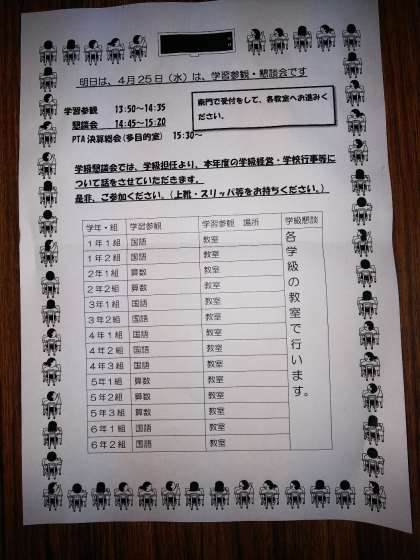 明日は、4月25日(水)は、学習参観・懇談会です
学習参観 13:50~14:35
懇談会 14:45~15:20
PTA決算総会(多目的室) 15:30~
東門で受付をして、各教室へお進みく
ださい。
学級懇談会では、学級担任より、本年度の学級経営・学校行事等に
ついて話をさせていただきます。
是非、ご参加ください。(上靴・スリッパ等をお持ちください。)
学年・組 学習参観 学習参観 場所 学級懇談
1年1組 国語 教室
1年2組 国語 教室
2年1組 算数 教室
2年2組 算数 教室
3年1組 国語 教室
3年2組 国語 教室
4年1組 国語 教室
4年2組 国語 教室
4年3組 国語 教室
5年1組 算数 教室
5年2組 算数 教室
5年3組 算数 教室
6年1組 国語 教室
6年2組 国語 教室
各学級の教室で行います。